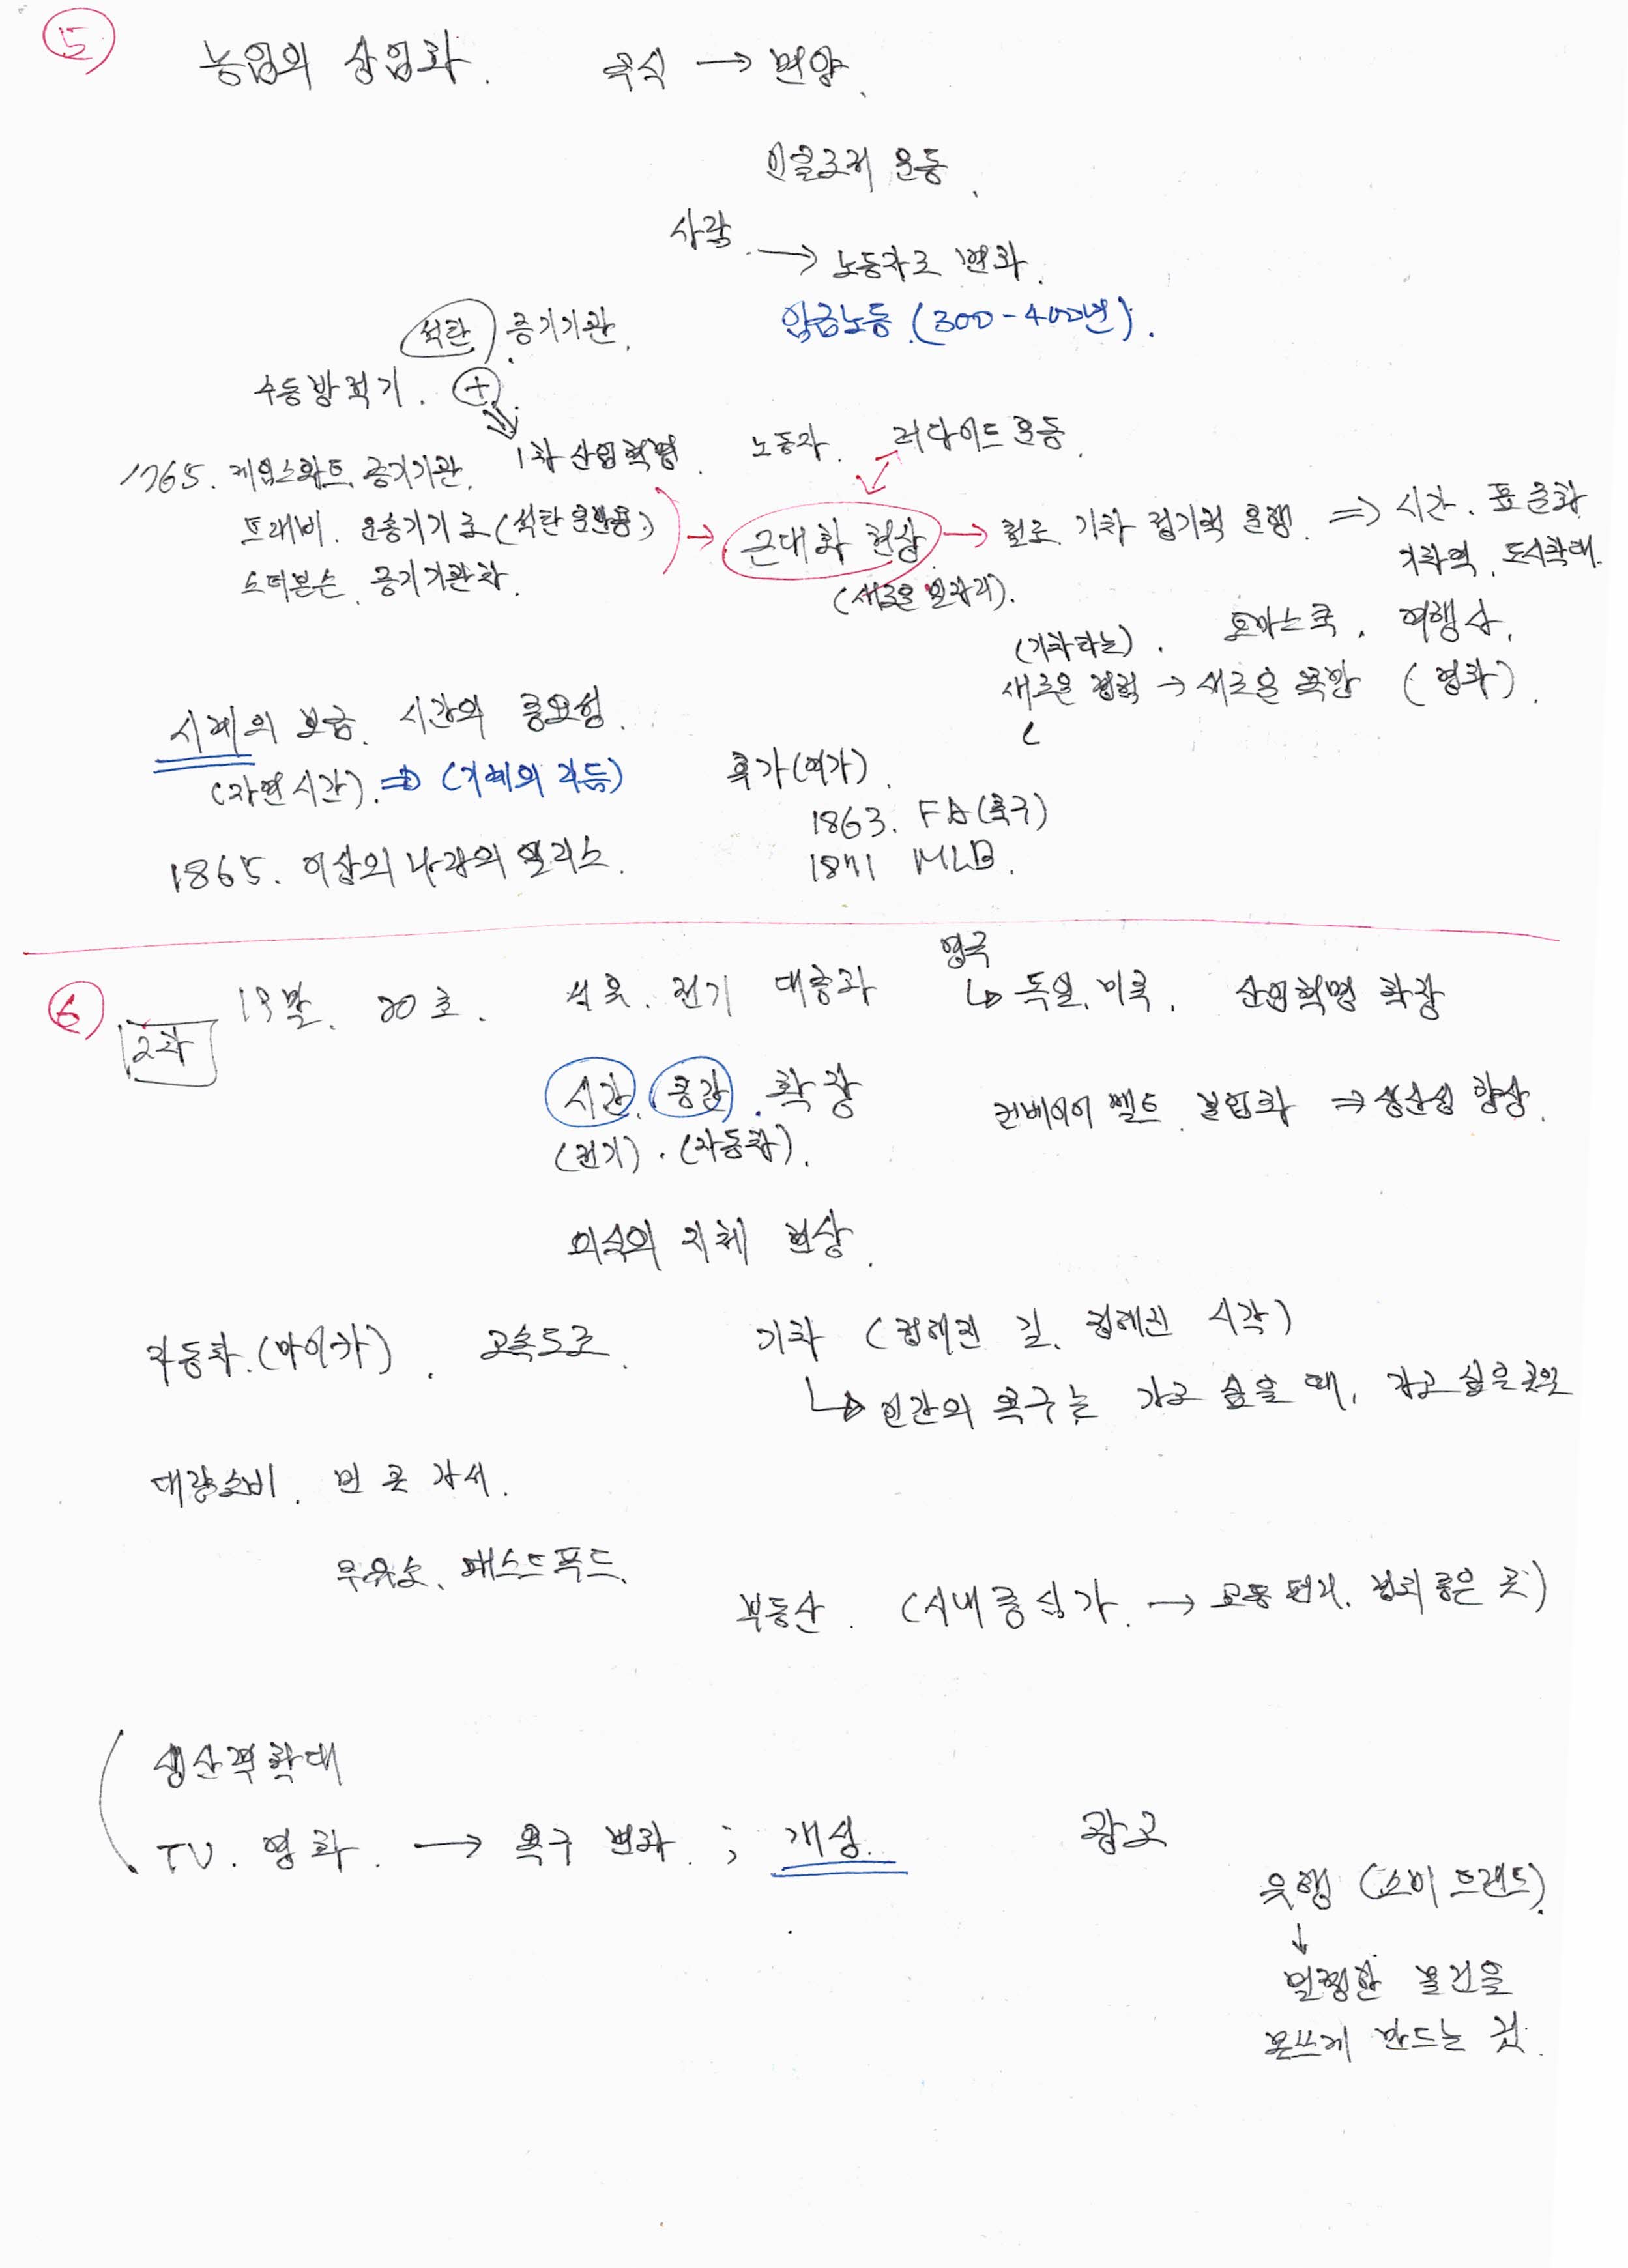 ⑤ 농업의 상업화. 곡식 → 면양.
인클로저 운동.
사람 → 노동자로 변화.
임금노동 (300-400년).
석탄) 증기기관.
수동방적기. ⊕
1차 산업혁명. 노동자. 러다이트 운동.
1765. 제임스와트. 증기기관.
트래비. 운송기기로 (석탄 운반용)
스티븐슨. 증기기관차.
→ 근대화 현상 → 철도. 기차 정기적 운행. ⇒ 시간. 표준화
(새로운 일자리). 기차역. 도시확대.
(기차타는). 토마스쿡. 여행사.
새로운 경험 → 새로운 욕망 (영화).
시계의 보급. 시간의 중요성.
(자연시간). ⇒ (기계의 작동)
휴가(여가).
1863. FA(축구)
1871 MLB.
1865. 이상의 나라의 앨리스.
⑥ 2차 19말. 20초. 석유. 전기 대중화
영국
↳ 독일. 미국. 산업혁명 확장
시간. 공간. 확장
(전기). (자동차).
컨베이어 벨트. 분업화 ⇒ 생산성 향상.
의식의 지체 현상.
자동차.(마이카). 고속도로.
기차 (정해진 길. 정해진 시각)
↳ 인간의 욕구는 가고 싶을 때, 가고 싶은곳으로
대량소비. 빈 곤 감세.
주유소. 패스트푸드.
부동산. (시내중심가. → 교통편리. 경치 좋은 곳)
생산력확대
TV. 영화. → 욕구 변화. ; 개성.
광고
유행 (소비 트렌드).
↓
멀쩡한 물건을
못쓰게 만드는 것.